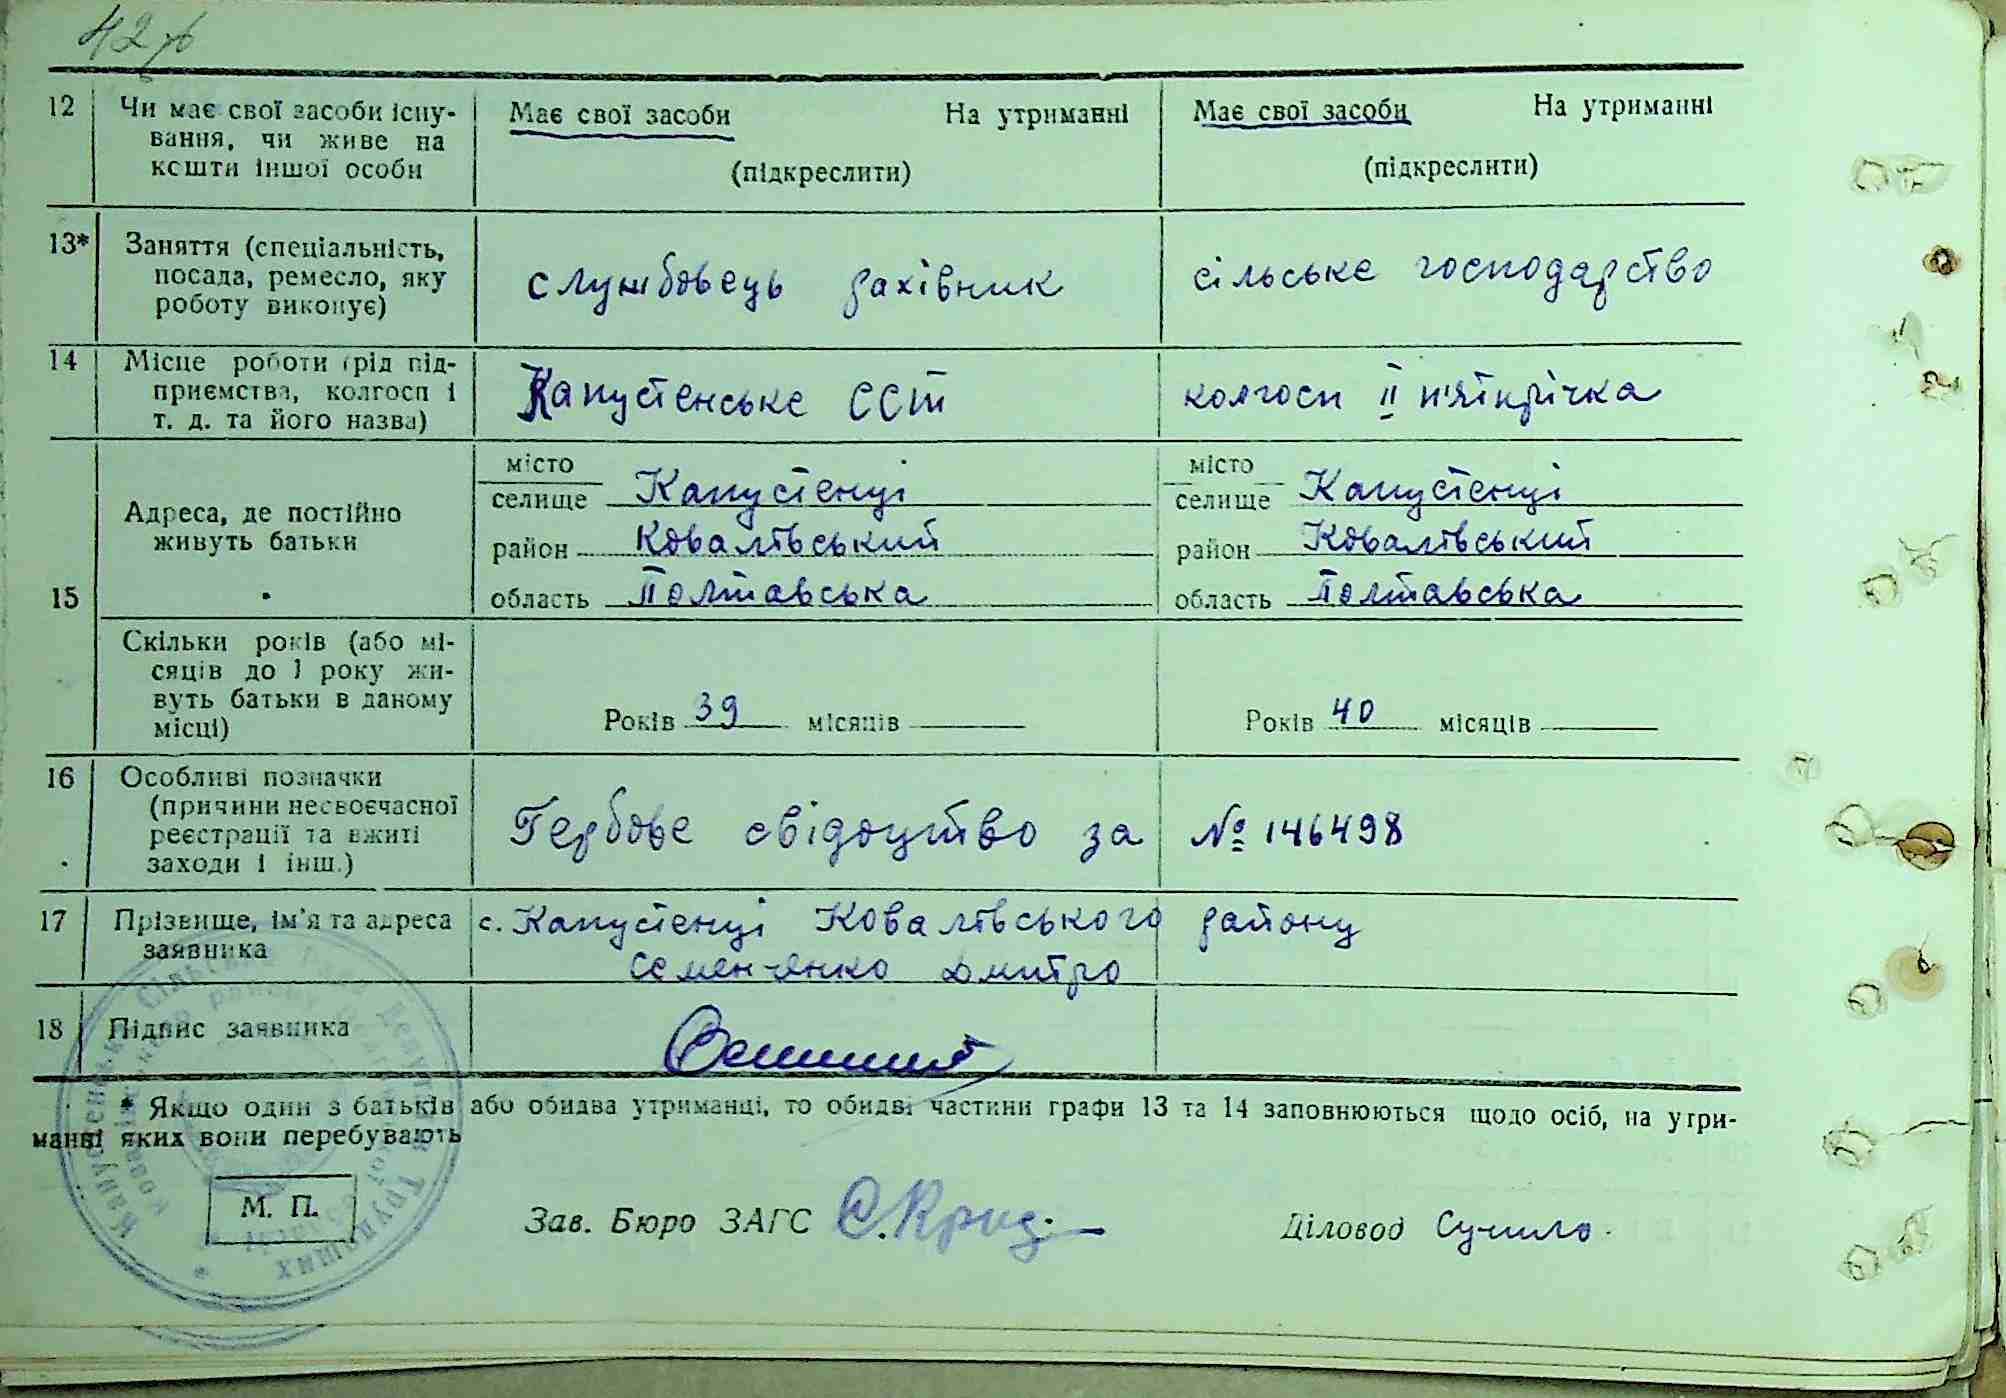 42
12 Чи має свої засоби існу- Має свої засоби На утриманні Має свої засоби На утриманні
вання, чи живе на
кошти іншої особи (підкреслити) (підкреслити)
13* Заняття (спеціальність,
посада, ремесло, яку службовець рахівник сільське господарство
роботу виконує)
14 Місце роботи (рід під-
приємства, колгосп і Капустенське ССТ колгосп II п'ятирічка
т. д. та його назва)
місто місто
селище Капустенці селище Капустенці
Адреса, де постійно
живуть батьки район Ковалівський район Ковалівський
15 область Полтавська область Полтавська
Скільки років (або мі-
сяців до 1 року жи-
вуть батьки в даному Років 39 місяців Років 40 місяців
місці)
16 Особливі позначки
(причини несвоєчасної
реєстрації та вжиті Гербове свідоцтво за № 146498
заходи і інш.)
17 Прізвище, ім'я та адреса с. Капустенці Ковалівського району
заявника Семенченко Дмитро
18 Підпис заявника
* Якщо один з батьків або обидва утриманці, то обидві частини графи 13 та 14 заповнюються щодо осіб, на утри-
манні яких вони перебувають
М. П. Зав. Бюро ЗАГС Діловод Сучило